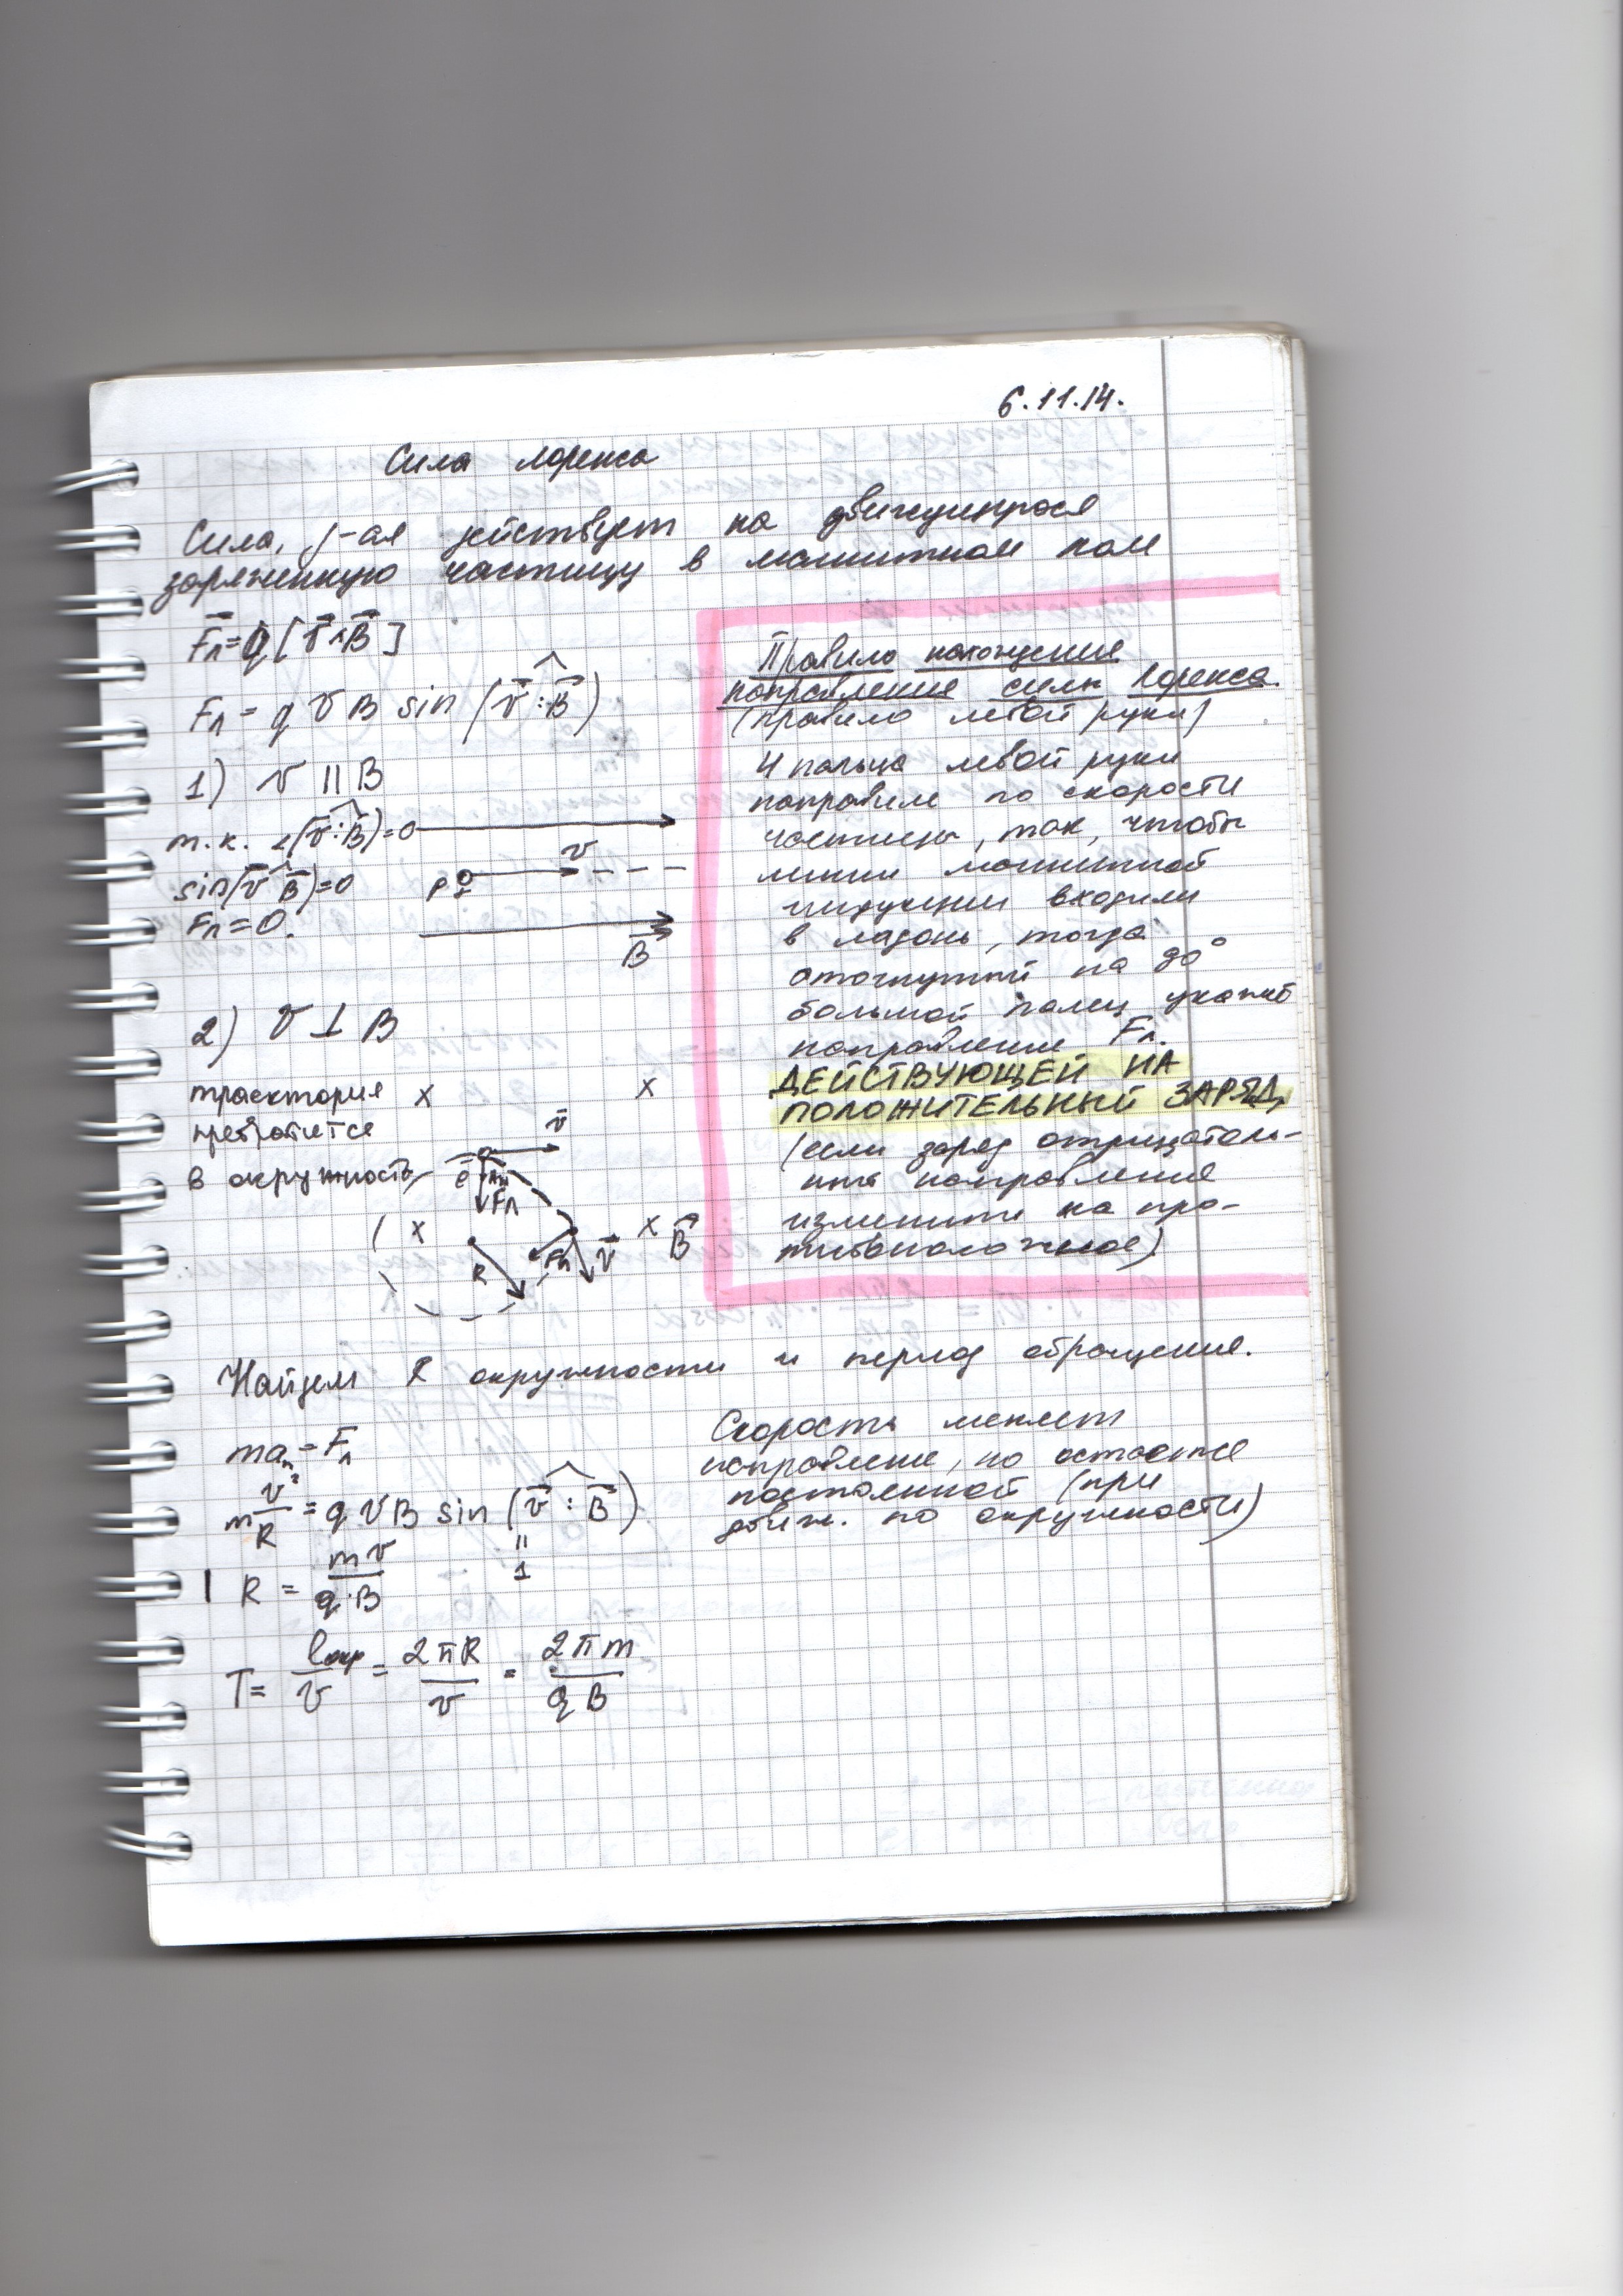 6.11.14.
Сила Лоренса
Сила, действует на движущуюся
заряженную частицу в магнитном поле
F⃗л = q [v⃗ × B⃗]
Fл = q v B sin (v⃗ ; B⃗)
1) v || B
т.к. ∠(v⃗ ; B⃗) = 0
sin(v⃗ B⃗) = 0
Fл = 0.
v
p
B⃗
2) v ⊥ B
траектория
превратится
в окружность
x x
v⃗
e
Fл
x x
R Fл v⃗ B⃗
Правило нахождения
направления силы Лоренса.
(правило левой руки)
4 пальца левой руки
направим по скорости
частицы, так, чтобы
линии магнитной
индукции входили
в ладонь, тогда
отогнутый на 90°
большой палец укажет
направление Fл.
ДЕЙСТВУЮЩЕЙ НА
ПОЛОЖИТЕЛЬНЫЙ ЗАРЯД,
(если заряд отрицатель-
направление
изменить на про-
тивоположное)
Найдем R окружности и период обращения.
maₙ = Fл
m v²/R = q v B sin (v⃗ ; B⃗)
"
1
R = mv / q·B
T = lокр / v = 2πR / v = 2πm / qB
Скорость меняет
направление, но остается
постоянной (при
движ. по окружности)